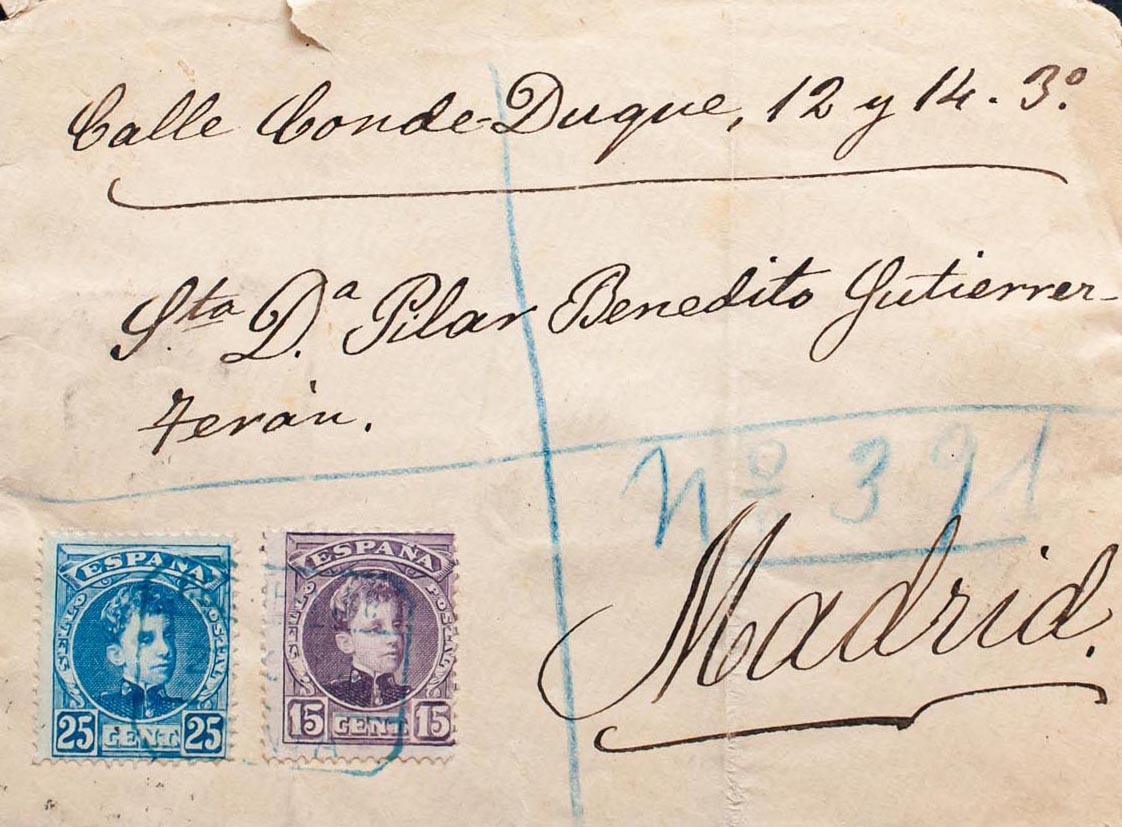 Calle Conde-Duque, 12 y 14. 3º
Sta D.ª Pilar Benedito Gutierrer-
Terán.
Nº 391
Madrid.
ESPAÑA
SELLO POSTAL
25 CENT 25
ESPAÑA
SELLO POSTAL
15 CENT 15